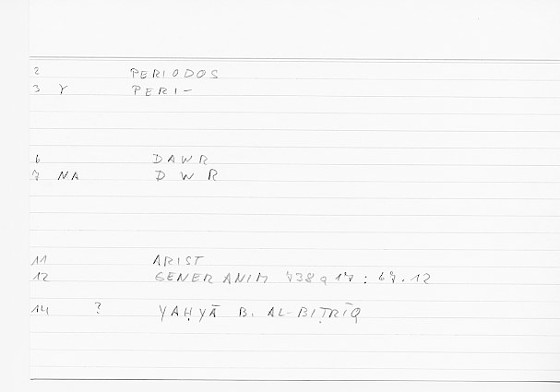 2 PERIODOS
3 Y PERI-
6 DAWR
7 NA D W R
11 ARIST
12 GENER ANIM 738a17 : 67.12
14 ? YAḤYĀ B. AL-BIṬRĪQ